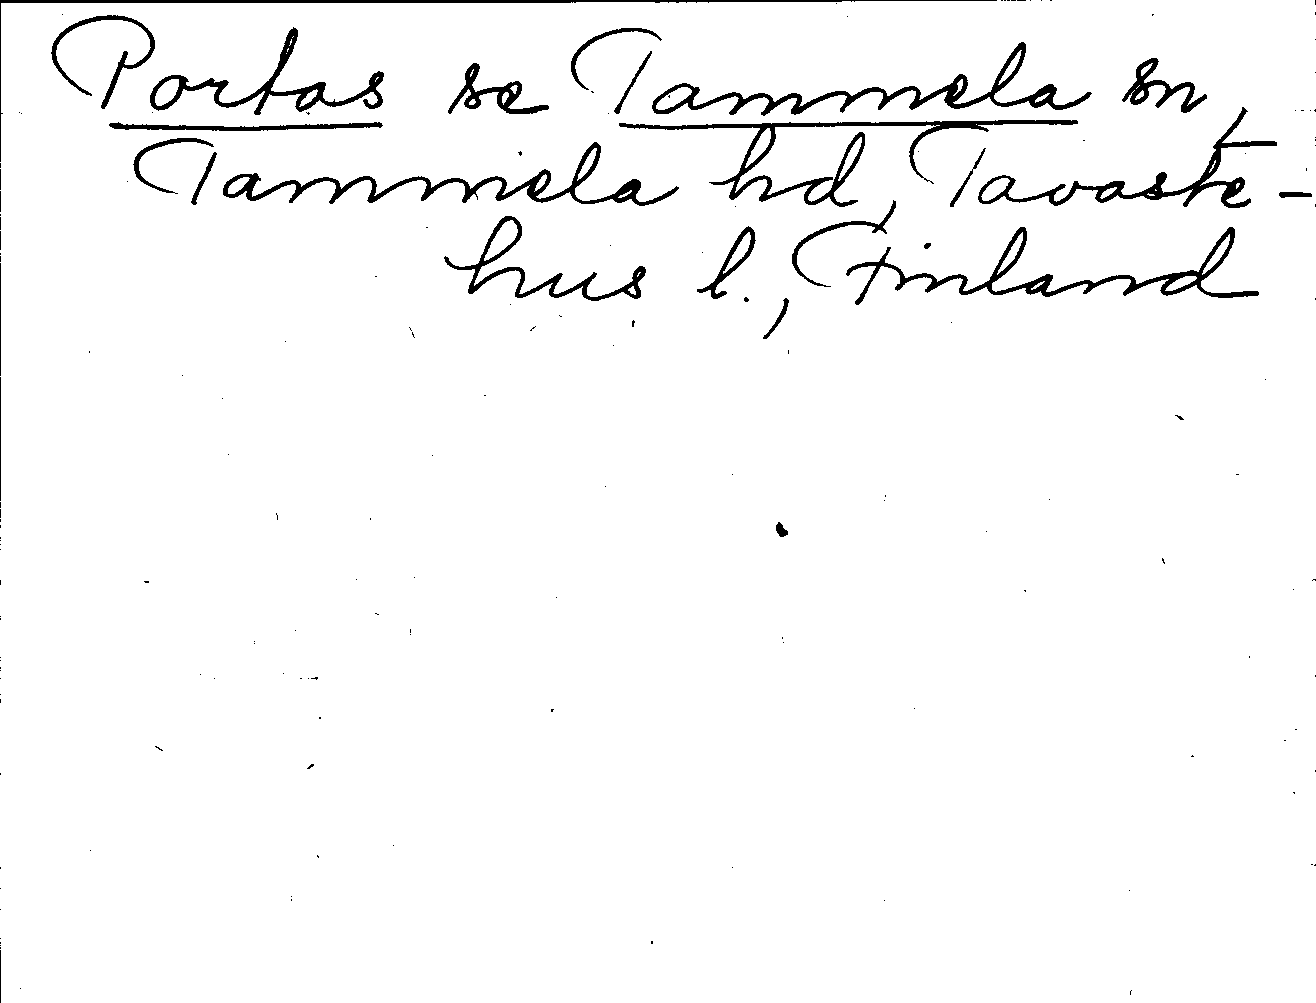 Portas se Tammela sn,
Tammela hd, Tavaste-
hus l., Finland